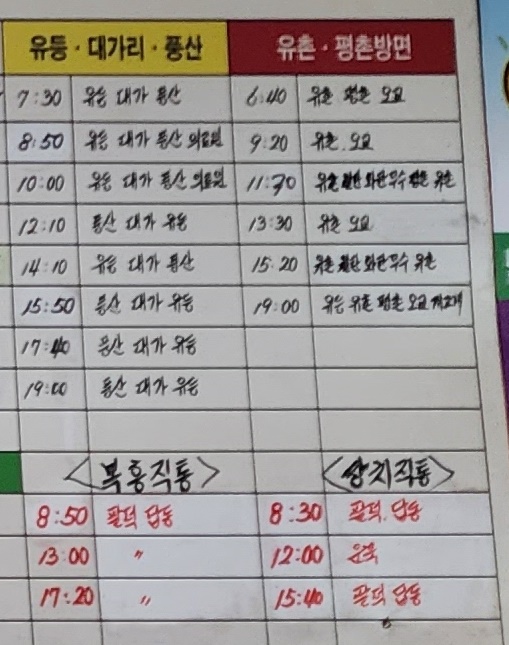 유등·대가리·풍산 유촌·평촌방면
7:30 유등 대가 풍산 6:40 유촌 평촌 오교
8:50 유등 대가 풍산 의료원 9:20 유촌. 오교
10:00 유등 대가 풍산 의료원 11:30 유촌 우수 평촌 유촌
12:10 풍산 대가 유등 13:30 유촌 오교
14:10 유등 대가 풍산 15:20 유촌 우수 유촌
15:50 풍산 대가 유등 19:00 유등 유촌 평촌 오교
17:40 풍산 대가 유등
19:00 풍산 대가 유등
<복흥직통> <쌍치직통>
8:50 팔덕 답동 8:30 팔덕. 답동
13:00 〃 12:00
17:20 〃 15:40 팔덕 답동